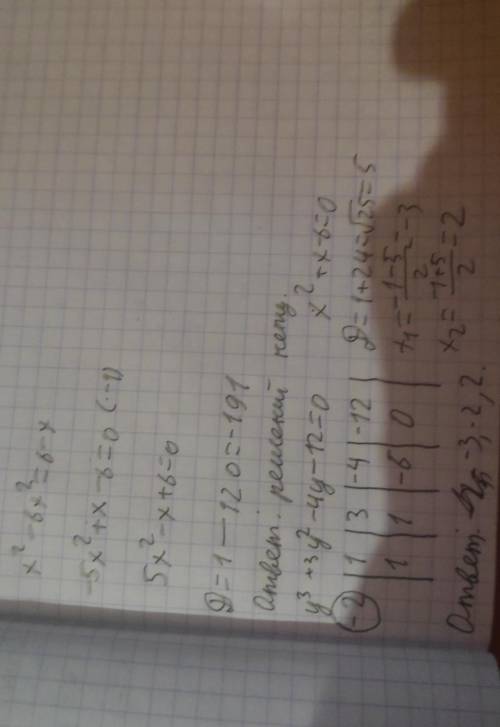 x² - 6x² = 6-x
-5x² + x - 6 = 0 (·-1)
5x² - x + 6 = 0
D = 1 - 120 = -191
Ответ: решений нету.
y³ + 3y² - 4y - 12 = 0
-2 | 1 | 3 | -4 | -12 |
| 1 | 1 | -6 | 0 |
x² + x - 6 = 0
D = 1 + 24 = √25 = 5
x₁ = (-1-5)/2 = -3
x₂ = (-1+5)/2 = 2
Ответ: -3, -2, 2.